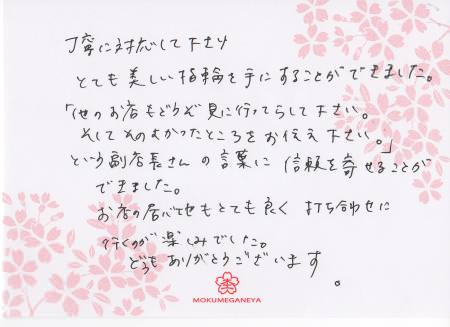 丁寧に対応して下さり
とても美しい指輪を手にすることができました。
「他のお店もどうぞ見に行ってらして下さい。
そしてそのよかったところをお伝え下さい。」
という副店長さんの言葉に信頼を寄せることが
できました。
お店の居心地もとても良く 打ち合わせに
行くのが楽しみでした。
どうもありがとうございます。
MOKUMEGANEYA